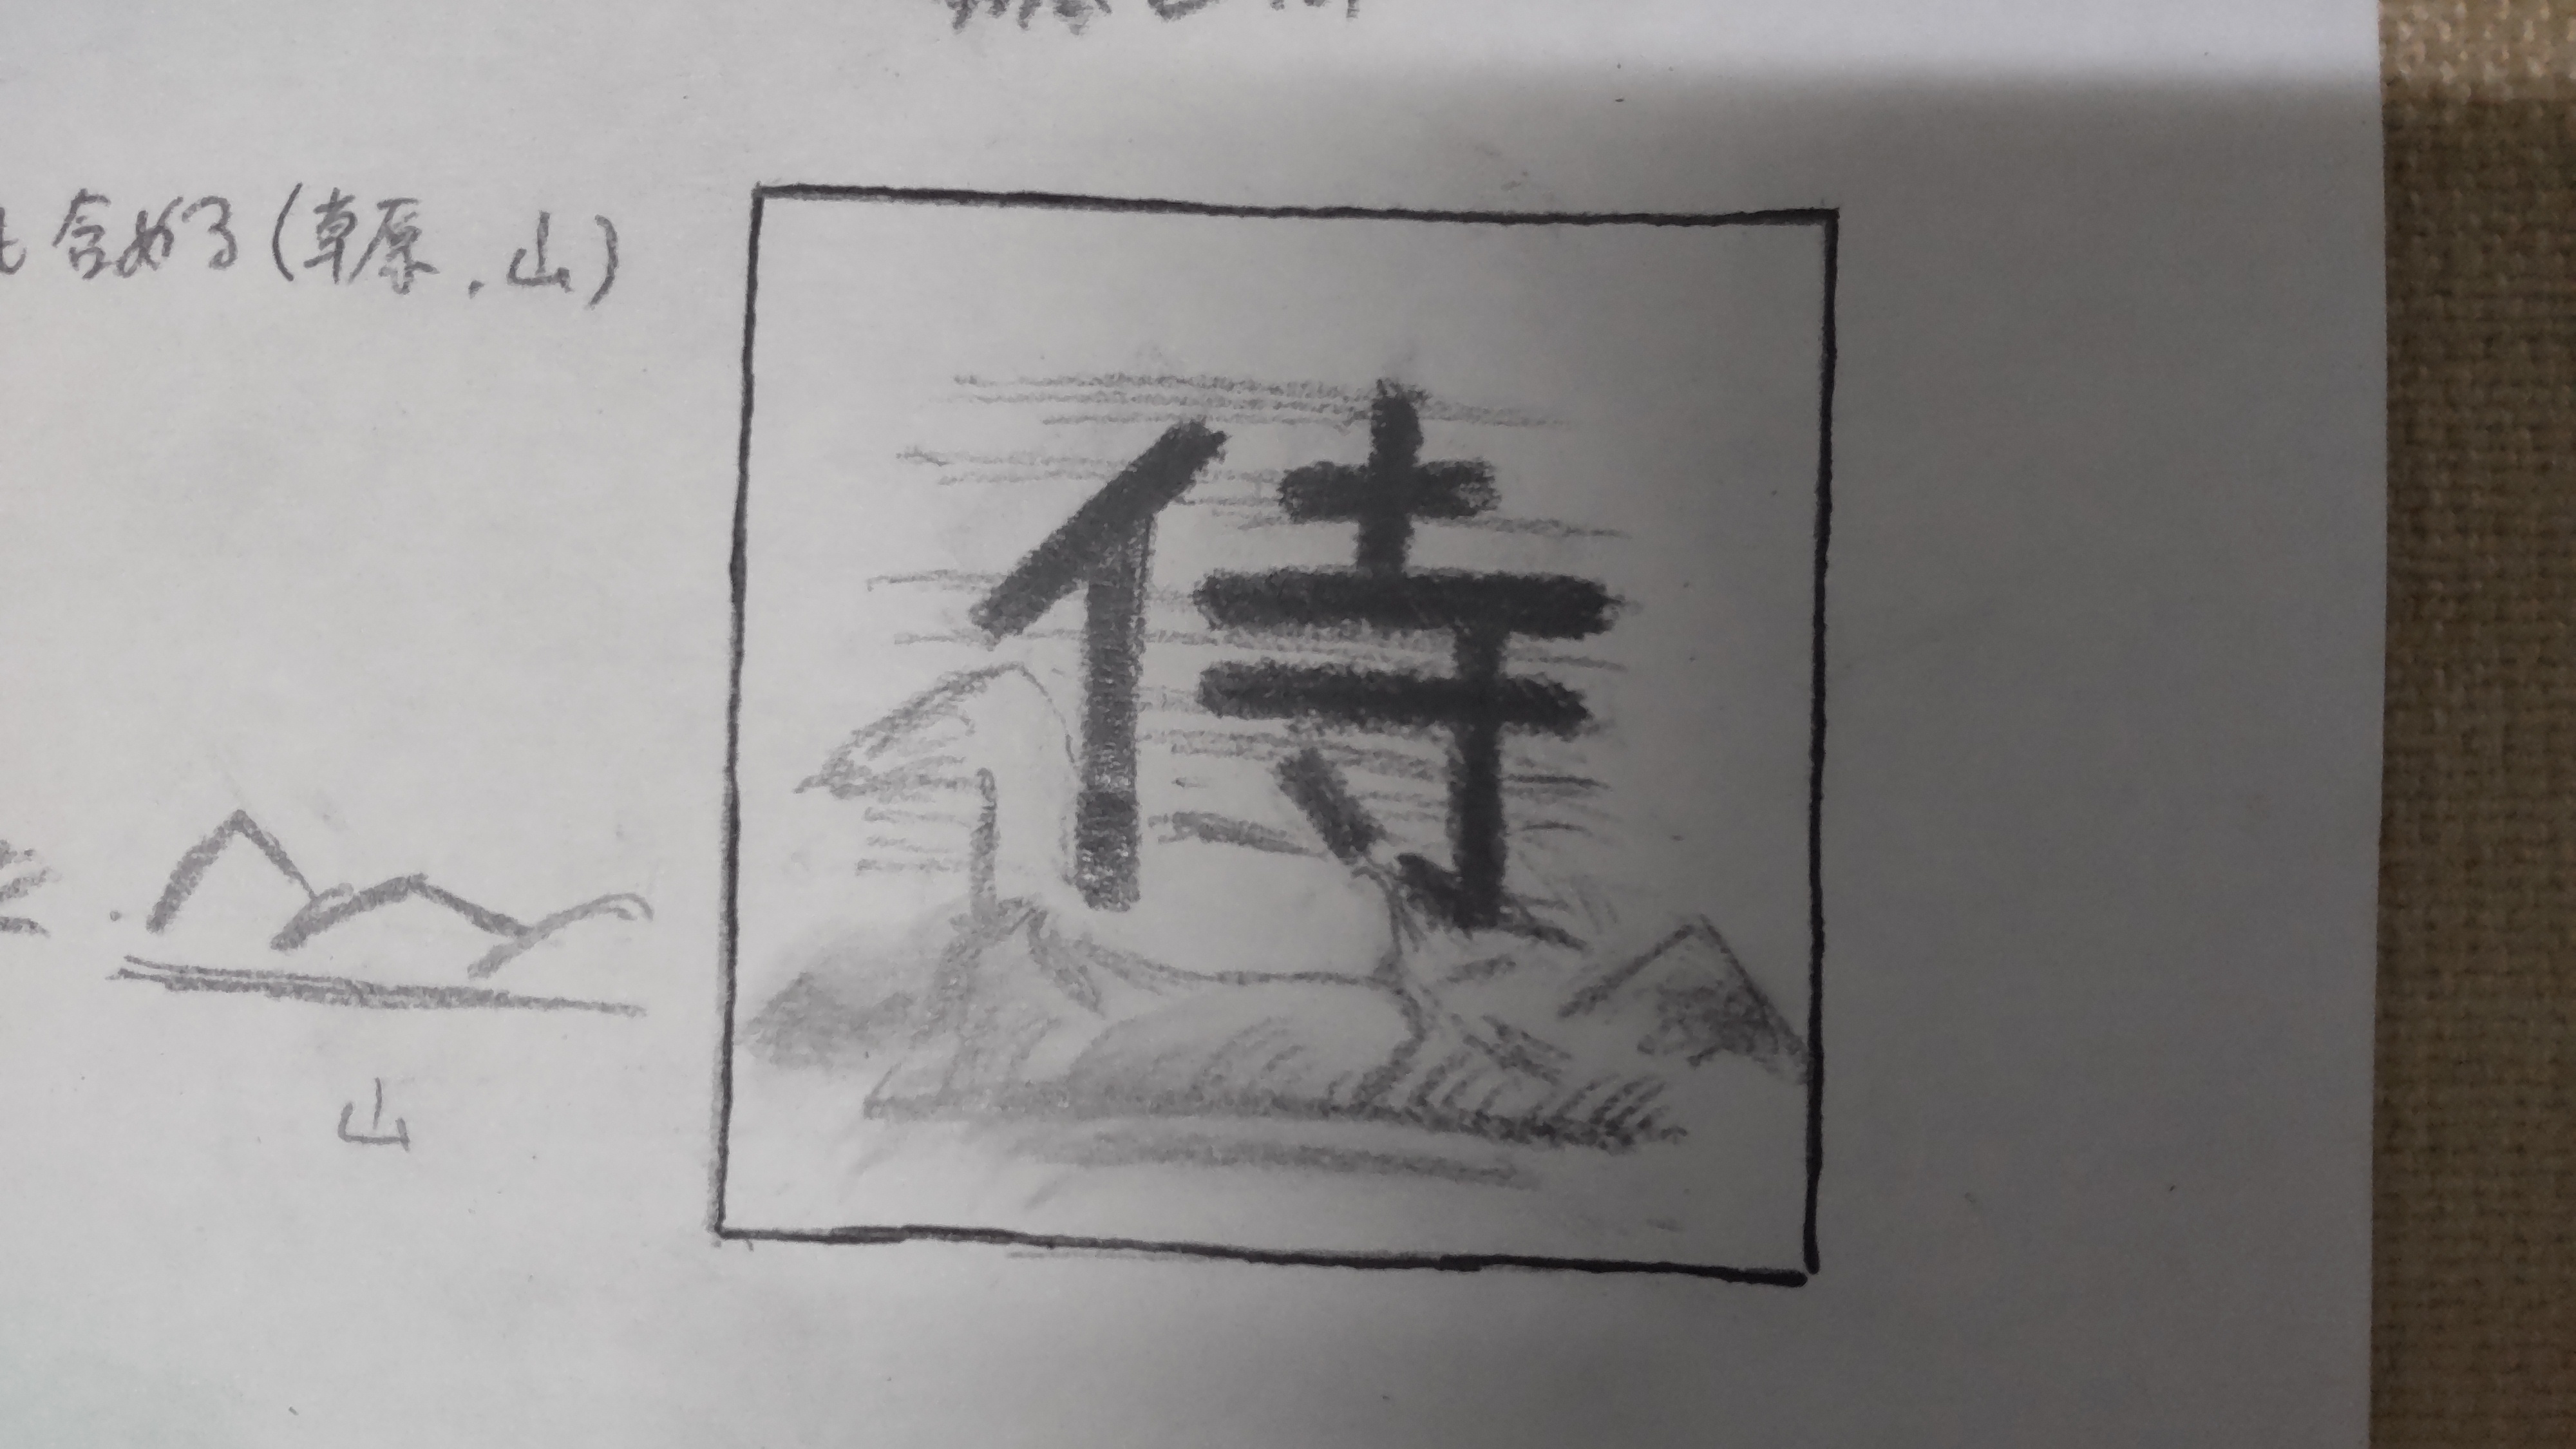 も含める(草原,山)
侍
山